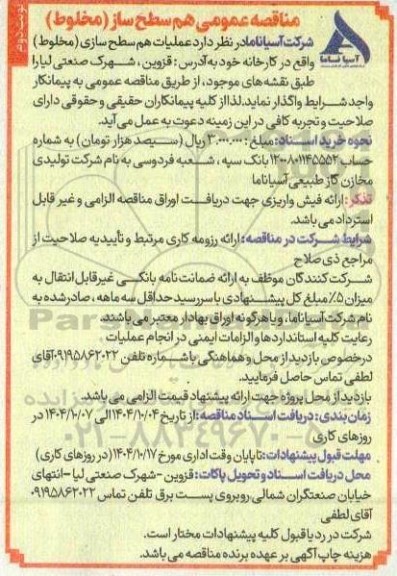 نوبت دوم
مناقصه عمومی هم سطح ساز (مخلوط)
آسیا ناما
شرکت آسیاناما در نظر دارد عملیات هم سطح سازی (مخلوط)
واقع در کارخانه خود به آدرس : قزوین ، شهرک صنعتی لیا را
طبق نقشه های موجود، از طریق مناقصه عمومی به پیمانکار
واجد شرایط واگذار نماید. لذا از کلیه پیمانکاران حقیقی و حقوقی دارای
صلاحیت و تجربه کافی در این زمینه دعوت به عمل می آید.
نحوه خرید اسناد: مبلغ : ۳.۰۰۰.۰۰۰ ریال (سیصد هزار تومان) به شماره
حساب ۱۲۰۰۸۰۱۱۴۵۵۵۲ بانک سپه ، شعبه فردوسی به نام شرکت تولیدی
مخازن گاز طبیعی آسیاناما
تذکر : ارائه فیش واریزی جهت دریافت اوراق مناقصه الزامی و غیر قابل
استرداد می باشد.
شرایط شرکت در مناقصه: ارائه رزومه کاری مرتبط و تأییدیه صلاحیت از
مراجع ذی صلاح
شرکت کنندگان موظف به ارائه ضمانت نامه بانکی غیرقابل انتقال به
میزان ۵٪ مبلغ کل پیشنهادی با سررسید حداقل سه ماهه ، صادر شده به
نام شرکت آسیاناما، و یا هرگونه اوراق بهادار معتبر می باشند.
رعایت کلیه استانداردها و الزامات ایمنی در انجام عملیات .
درخصوص بازدید از محل و هماهنگی با شماره تلفن ۰۹۱۹۵۸۶۲۰۲۲ آقای
لطفی تماس حاصل فرمایید.
بازدید از محل پروژه جهت ارائه پیشنهاد قیمت الزامی می باشد.
زمان بندی : دریافت اسناد مناقصه: از تاریخ ۱۴۰۴/۱۰/۰۴ الی ۱۴۰۴/۱۰/۰۷ در
روزهای کاری
مهلت قبول پیشنهادات: تا پایان وقت اداری مورخ ۱۴۰۴/۱۰/۱۷ (در روزهای کاری)
محل دریافت اسناد و تحویل پاکات: قزوین -شهرک صنعتی لیا- انتهای
خیابان صنعتگران شمالی، روبروی پست برق تلفن تماس ۰۹۱۹۵۸۶۲۰۲۲
آقای لطفی
شرکت در رد یا قبول کلیه پیشنهادات مختار است.
هزینه چاپ آگهی بر عهده برنده مناقصه می باشد.